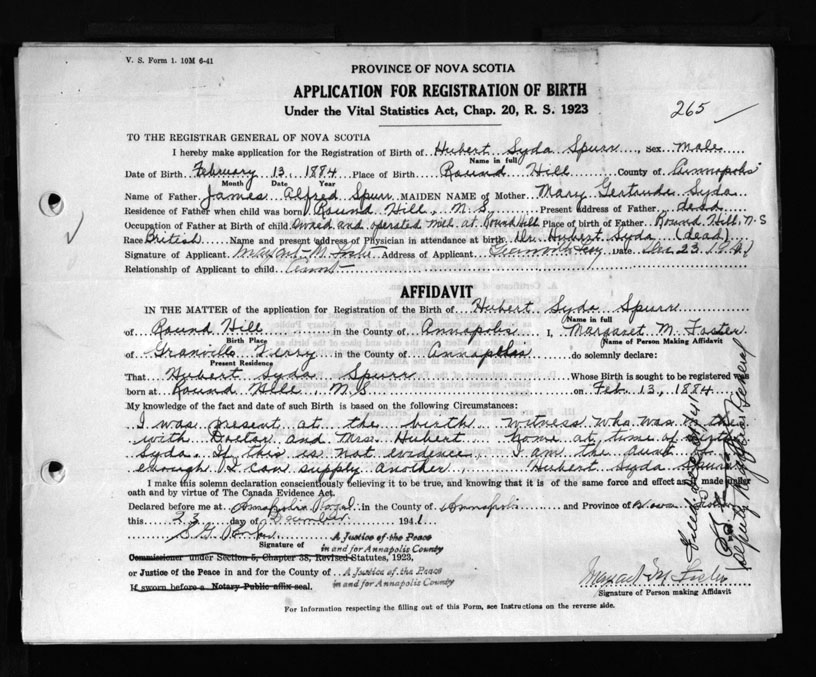 V. S. Form 1. 10M 6-41
PROVINCE OF NOVA SCOTIA
APPLICATION FOR REGISTRATION OF BIRTH
Under the Vital Statistics Act, Chap. 20, R. S. 1923
265
TO THE REGISTRAR GENERAL OF NOVA SCOTIA
I hereby make application for the Registration of Birth of Hubert Syda Spurr, Sex Male
Name in full
Date of Birth February 13, 1884 Place of Birth Round Hill County of Annapolis
Month Date Year
Name of Father James Alfred Spurr MAIDEN NAME of Mother Mary Gertrude Syda
Residence of Father when child was born Round Hill, N.S. Present address of Father dead
Occupation of Father at Birth of child Owned and operated mill at Round Hill Place of birth of Father Round Hill, N.S
Race British Name and present address of Physician in attendance at birth Dr. Hubert Syda (dead)
Signature of Applicant Margaret M. Foster Address of Applicant Date Dec 23 1941
Relationship of Applicant to child Aunt
AFFIDAVIT
IN THE MATTER of the application for Registration of the Birth of Hubert Syda Spurr
Name in full
of Round Hill in the County of Annapolis I, Margaret M. Foster
Birth Place Name of Person Making Affidavit
of Granville Ferry in the County of Annapolis do solemnly declare:
Present Residence
That Hubert Syda Spurr Whose Birth is sought to be registered was
born at Round Hill, N.S. on Feb. 13, 1884
My knowledge of the fact and date of such Birth is based on the following Circumstances:
I was present at the birth witness who was in the
with Doctor and Mrs. Hubert home at time of birth
Syda. If this is not evidence I am the aunt of
enough I can supply another Hubert Syda Spurr
I make this solemn declaration conscientiously believing it to be true, and knowing that it is of the same force and effect as made under
oath and by virtue of The Canada Evidence Act.
Declared before me at Annapolis Royal in the County of Annapolis and Province of Nova Scotia
this 23 day of December 1941
Signature of A Justice of the Peace
in and for Annapolis County
Commissioner under Section 5, Chapter 38, Revised Statutes, 1923,
or Justice of the Peace in and for the County of A Justice of the Peace
in and for Annapolis County
If sworn before a Notary Public affix seal.
Margaret M. Foster
Signature of Person making Affidavit
For Information respecting the filling out of this Form, see Instructions on the reverse side.
Deputy Registrar General